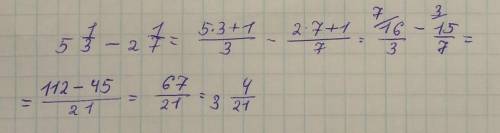 5 1/3 − 2 1/7 = (5·3+1)/3 − (2·7+1)/7 = ⁷⁄16/3 − ³⁄15/7 =
= (112−45)/21 = 67/21 = 3 4/21